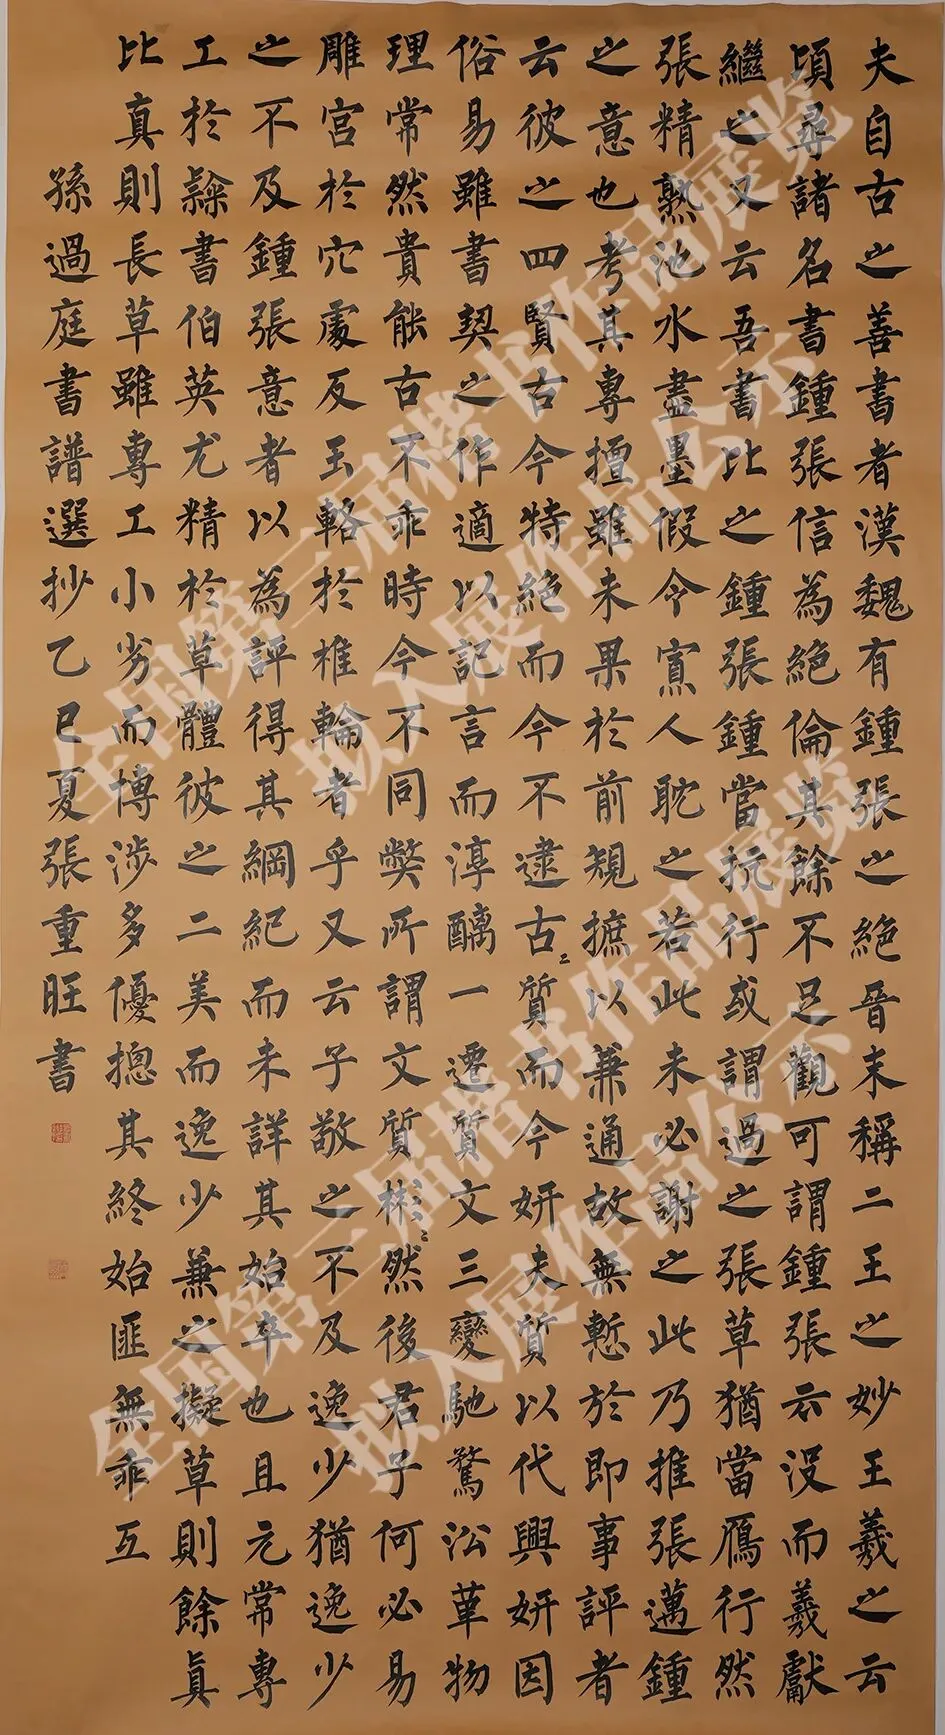 夫自古之善書者漢魏有鍾張之絕晉末稱二王之妙王羲之云
頃尋諸名書鍾張信為絕倫其餘不足觀可謂鍾張云沒而羲獻
繼之又云吾書比之鍾張鍾當抗行或謂過之張草猶當鴈行然
張精熟池水盡墨假令寡人耽之若此未必謝之此乃推張邁鍾
之意也考其專擅雖未果於前規摭以兼通故無慙於即事評者
云彼之四賢古今特絕而今不逮古〻質而今妍夫質以代興妍因
俗易雖書契之作適以記言而淳醨一遷質文三變馳騖沿革物
理常然貴能古不乖時今不同獘所謂文質彬〻然後君子何必易
雕宮於穴處反玉輅於椎輪者乎又云子敬之不及逸少猶逸少
之不及鍾張意者以為評得其綱紀而未詳其始卒也且元常專
工於隸書伯英尤精於草體彼之二美而逸少兼之擬草則餘真
比真則長草雖專工小劣而博涉多優摠其終始匪無乖互
孫過庭書譜選抄乙巳夏張重旺書
全国第三届楷书作品展览
拟入展作品公示
全国第三届楷书作品展览
拟入展作品公示